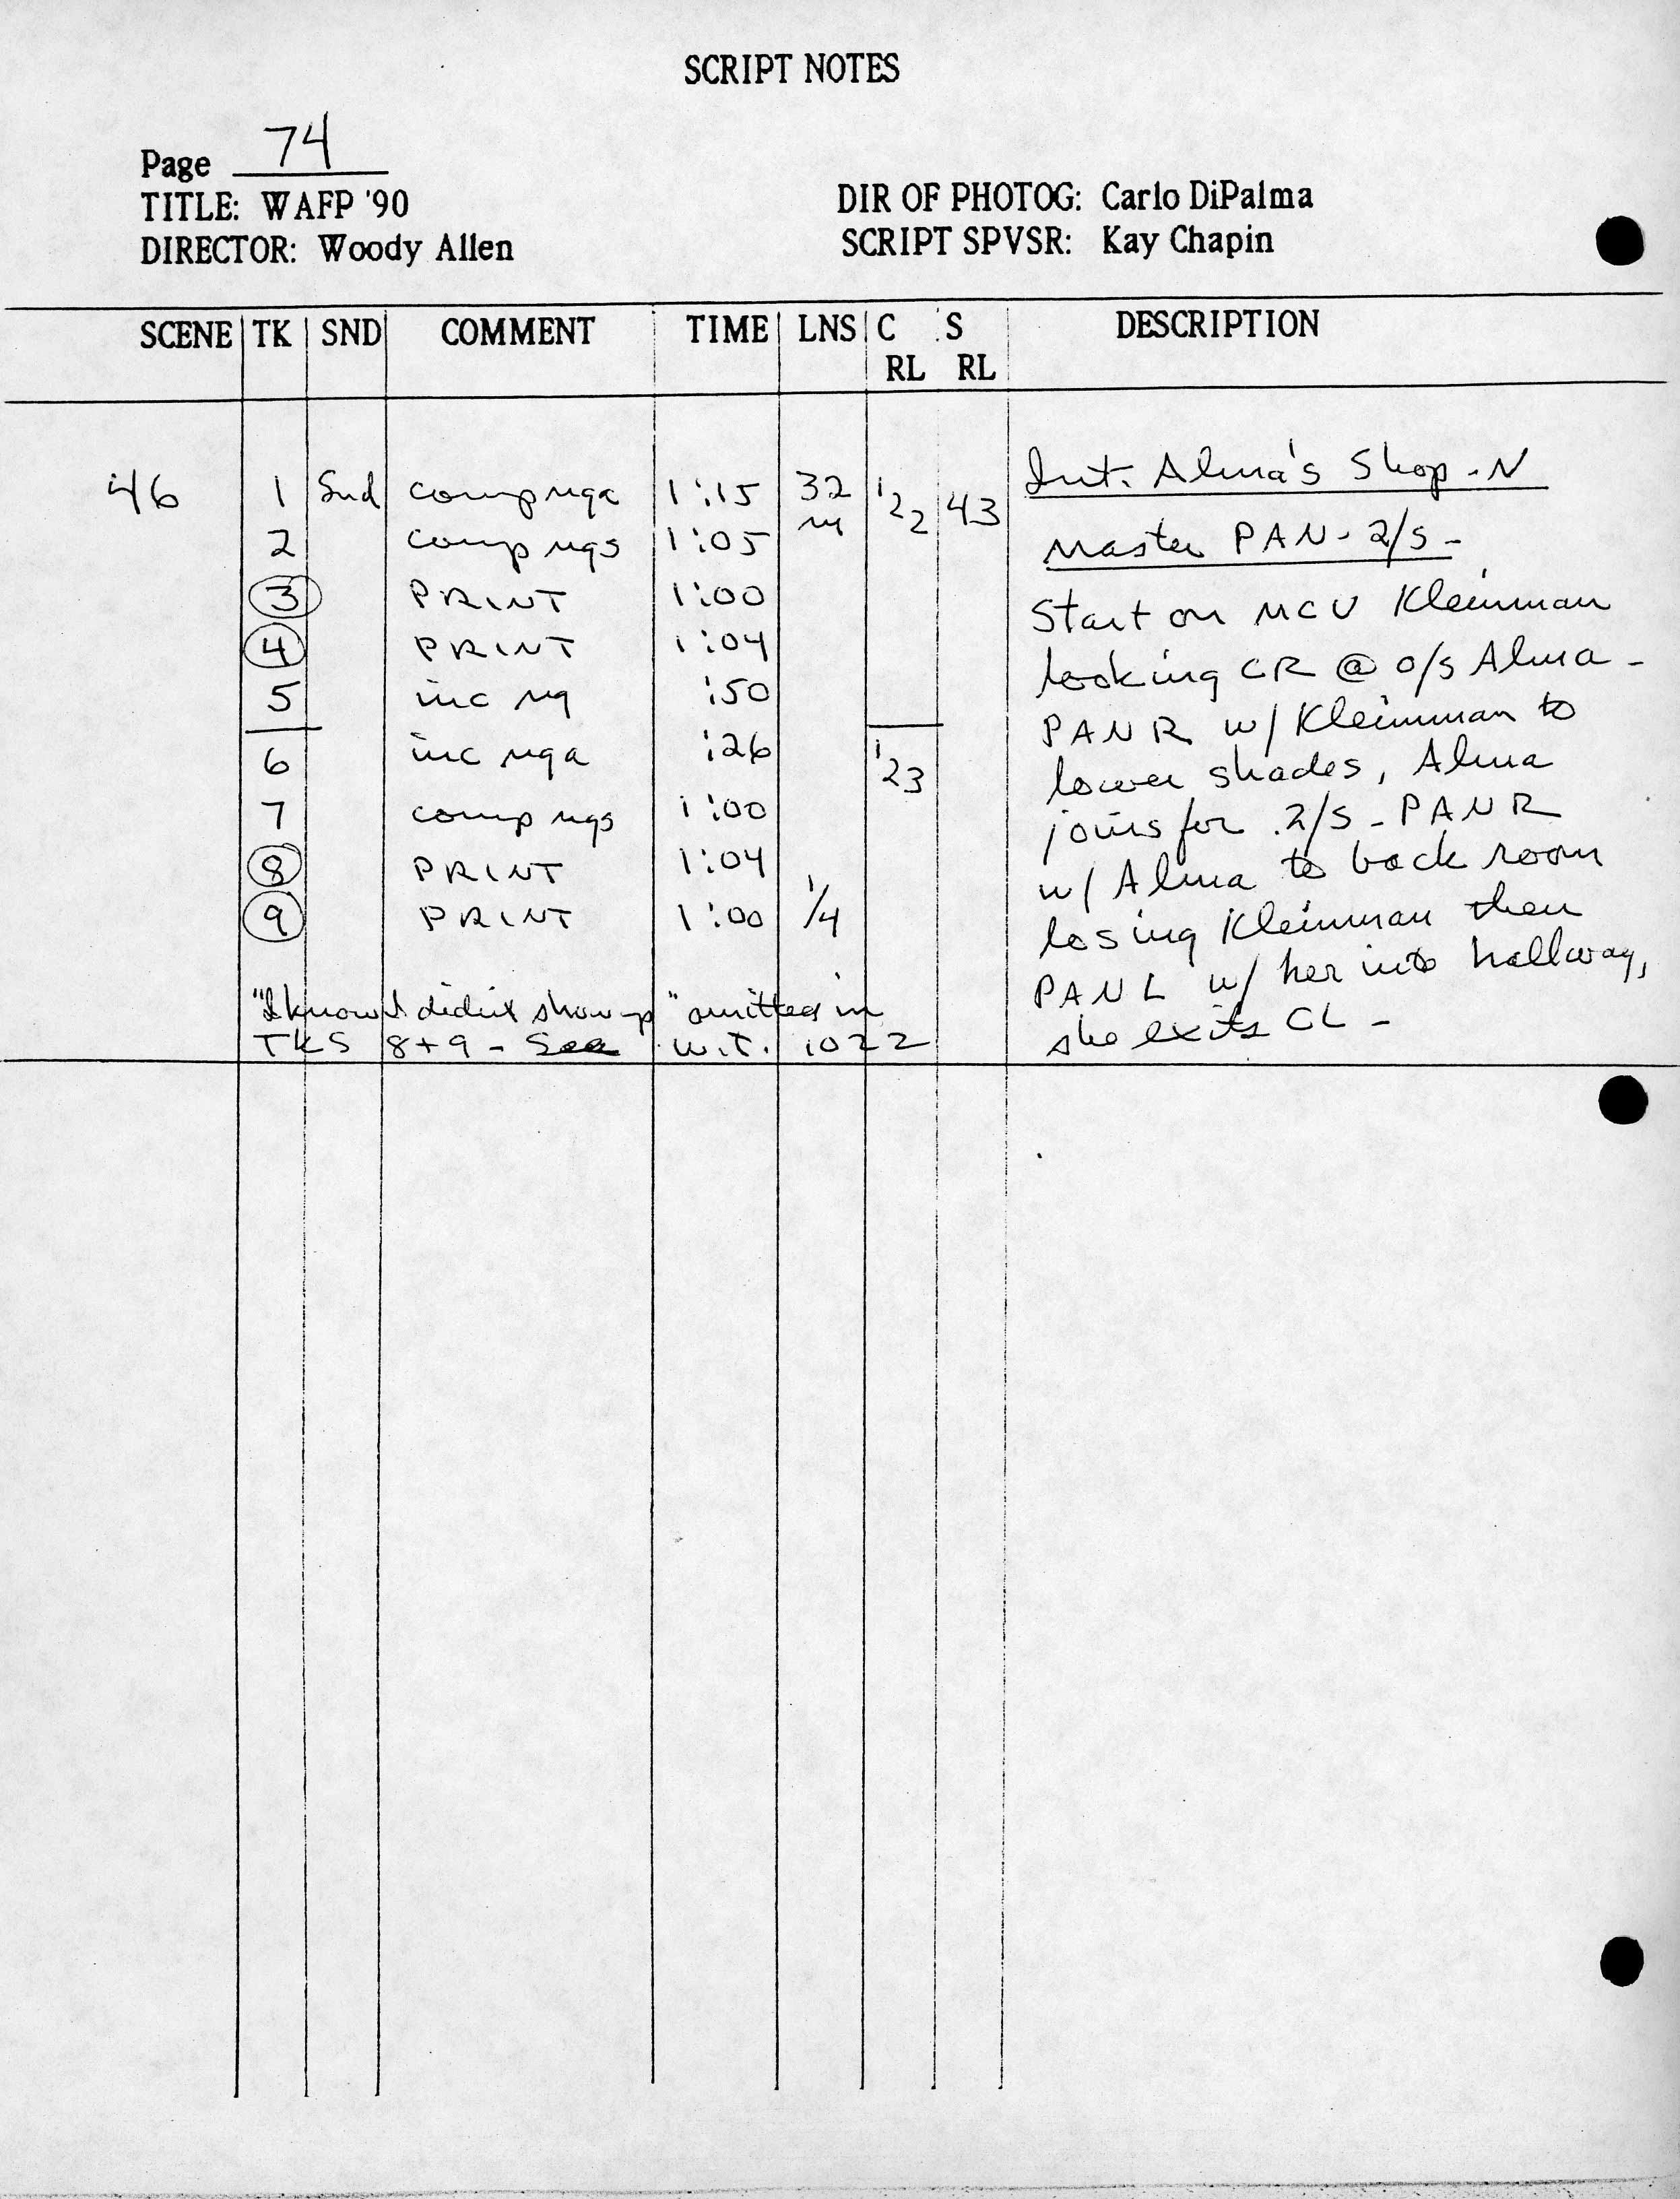 SCRIPT NOTES
Page 74
TITLE: WAFP '90
DIRECTOR: Woody Allen
DIR OF PHOTOG: Carlo DiPalma
SCRIPT SPVSR: Kay Chapin
SCENE TK SND COMMENT TIME LNS C RL S RL DESCRIPTION
46 1 Snd comp nga 1:15 32 22 43 Int. Alma's Shop - N
2 comp ngs 1:05 Master PAN - 2/S -
3 PRINT 1:00 Start on MCU Kleinman
4 PRINT 1:04 looking CR @ o/s Alma -
5 inc ng :50 PAN R w/ Kleinman to
6 inc nga :26 23 lower shades, Alma
7 comp ngs 1:00 joins for 2/S - PAN R
8 PRINT 1:04 w/ Alma to back room
9 PRINT 1:00 1/4 losing Kleinman then
PAN L w/ her into hallway,
she exits CL -
"I know I didn't show up" omitted in
TKS 8+9 - See W.T. 1022